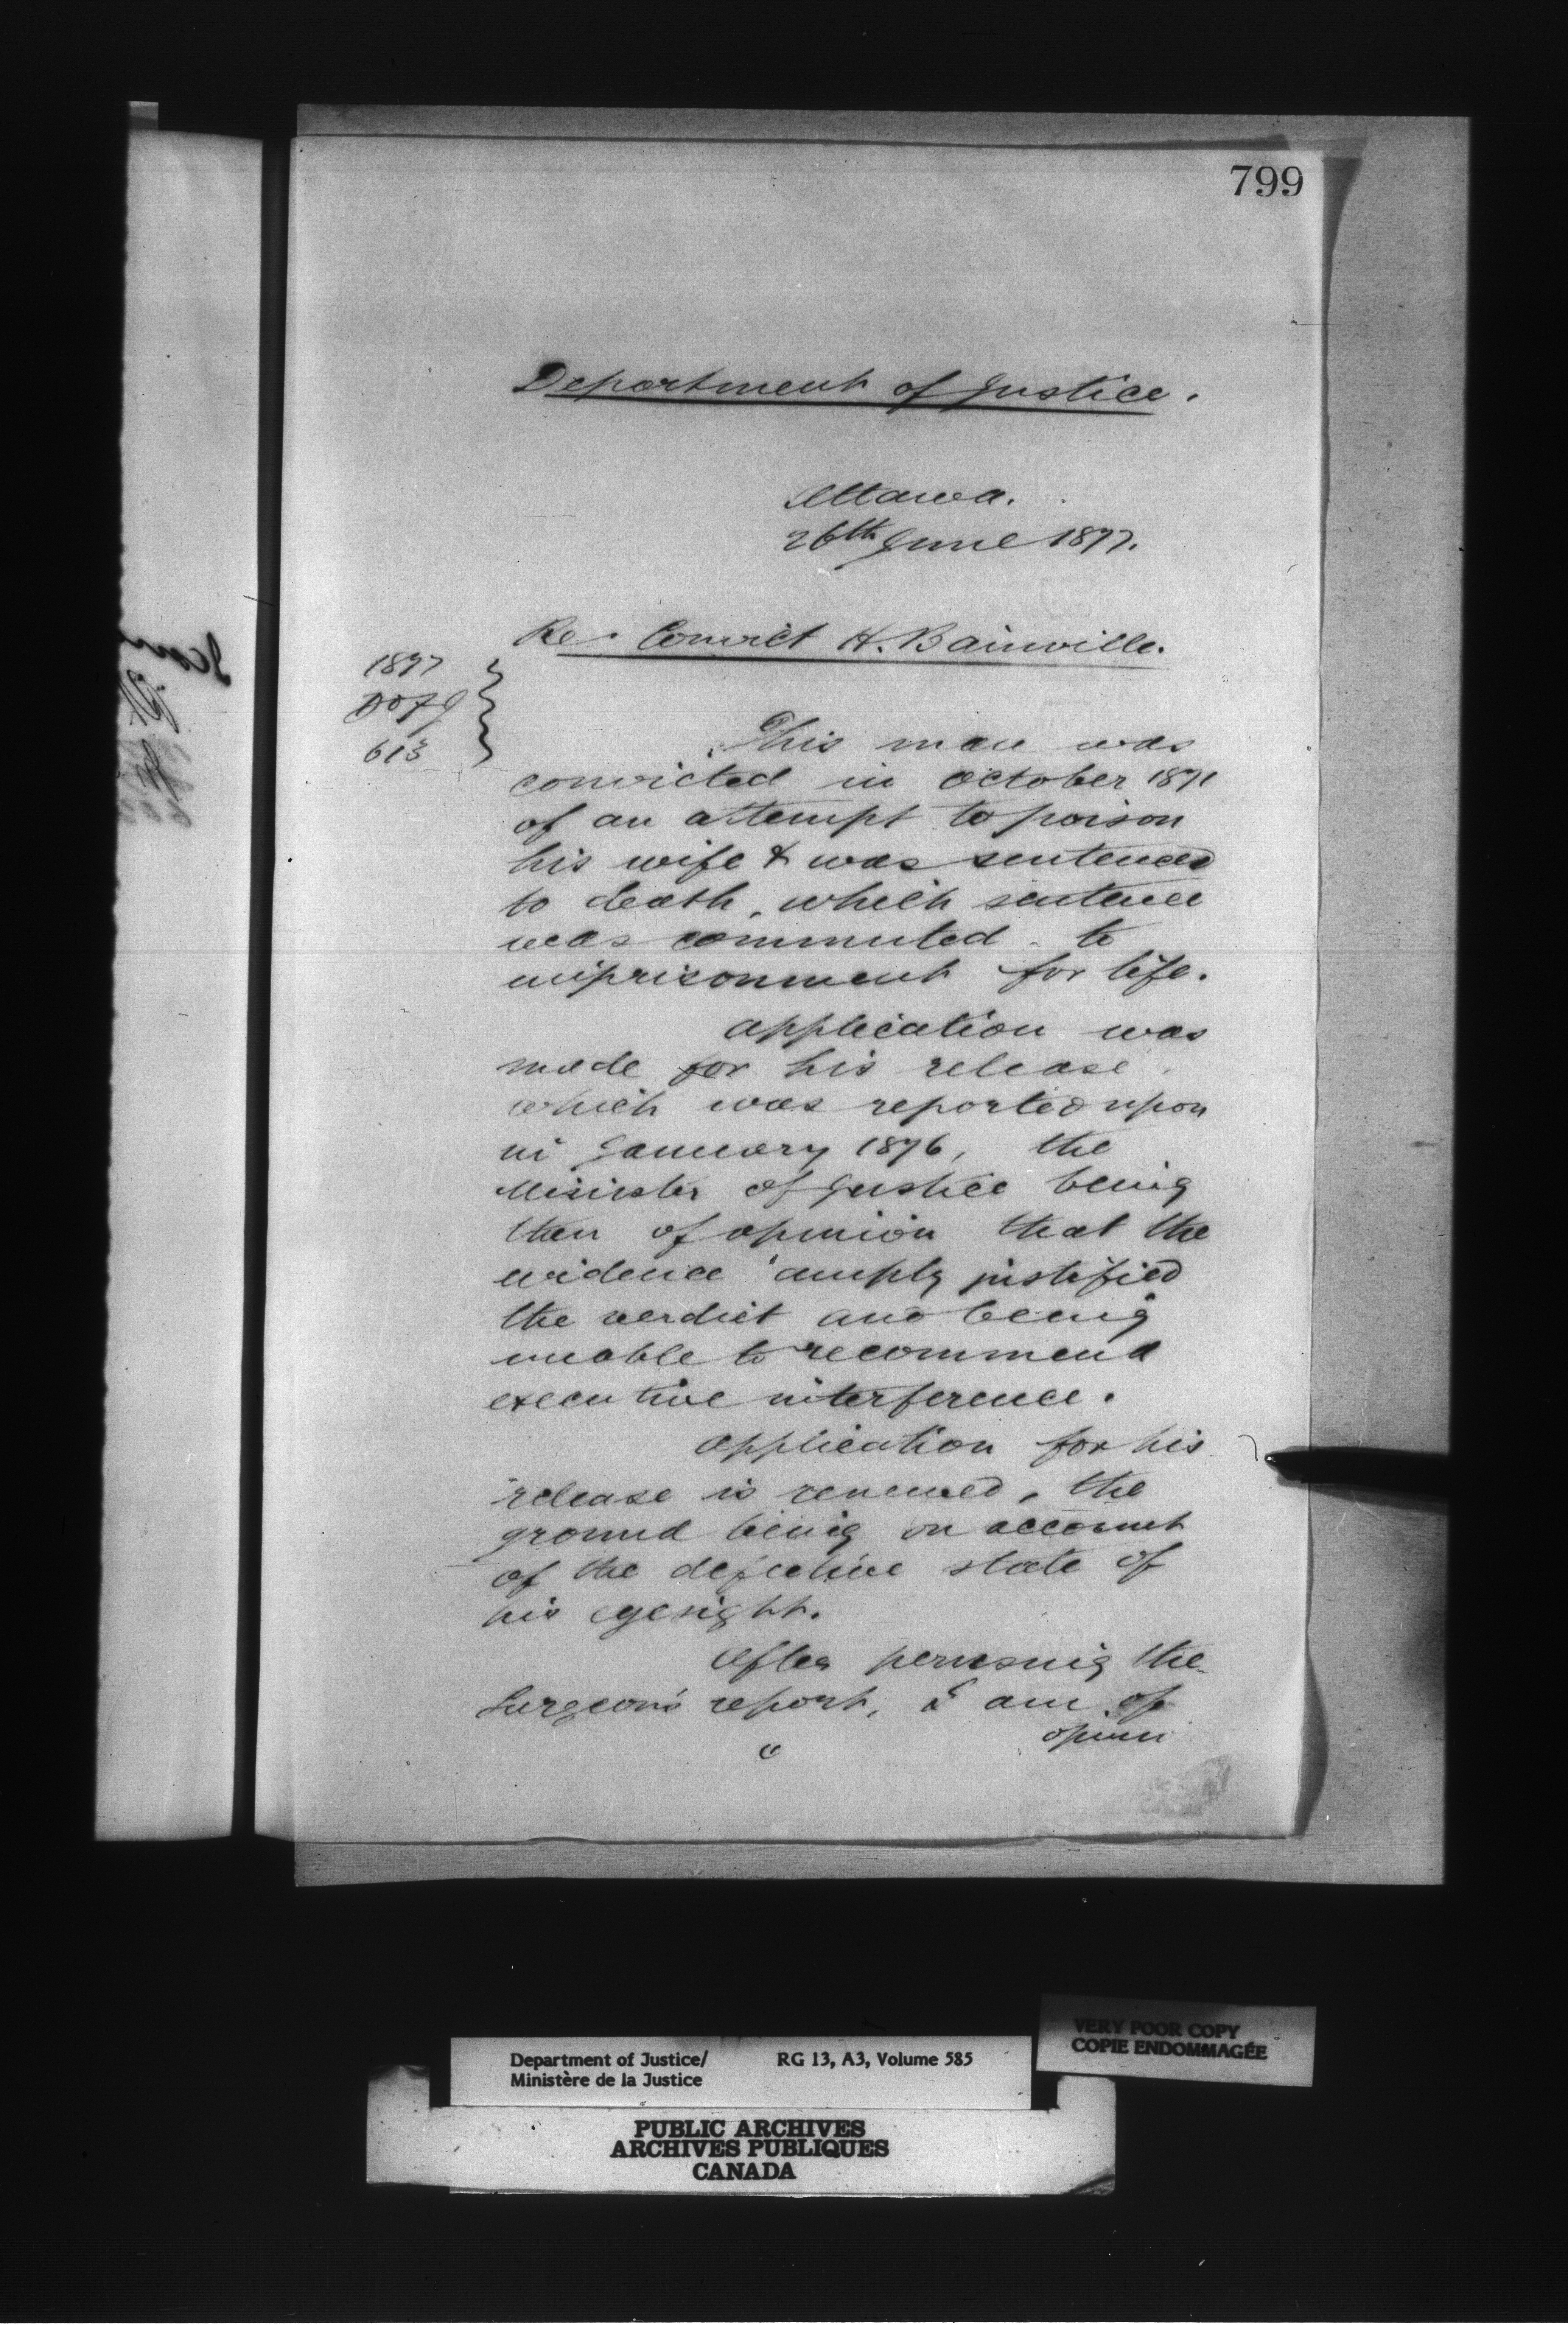 799
Department of Justice.
Ottawa.
26th June 1877.
Re: Convict H. Bainville.
1877
DofJ
613
This man was
convicted in October 1871
of an attempt to poison
his wife & was sentenced
to death, which sentence
was commuted to
imprisonment for life.
Application was
made for his release
which was reported upon
in January 1876, the
Minister of Justice being
then of opinion that the
evidence amply justified
the verdict and being
unable to recommend
executive interference.
Application for his
release is renewed, the
ground being on account
of the defective state of
his eyesight.
After perusing the
Surgeon's report, I am of
Department of Justice/ RG 13, A3, Volume 585
Ministère de la Justice
VERY POOR COPY
COPIE ENDOMMAGÉE
PUBLIC ARCHIVES
ARCHIVES PUBLIQUES
CANADA